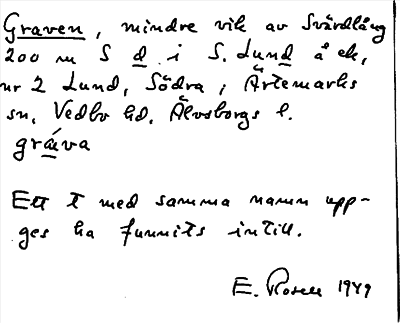 Graven, mindre vik av Svärdlång
200 m S d i S. Lund å ek,
nr 2 Lund, Södra, Ärtemarks
sn, Vedbo hd, Älvsborgs l.
gráva
Ett t med samma namn upp-
ges ha funnits intill.
E. Rosell 1949